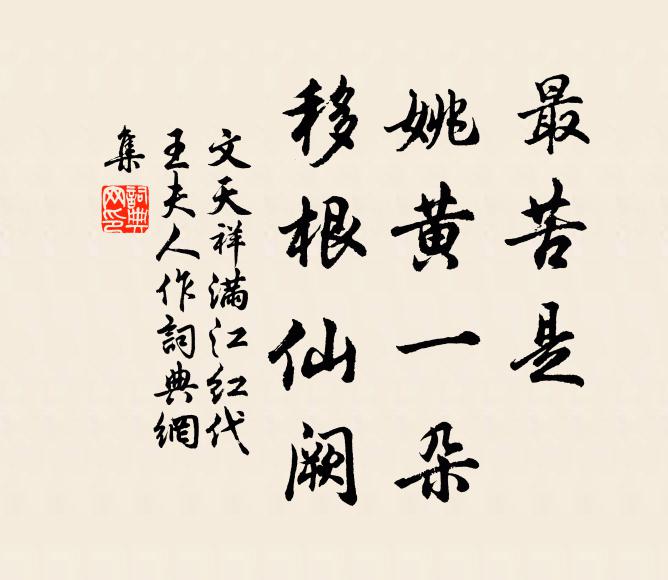 最苦是
姚黄一朵
移根仙阙
文天祥满江红代
王夫人作詞典網
集
詞典網印